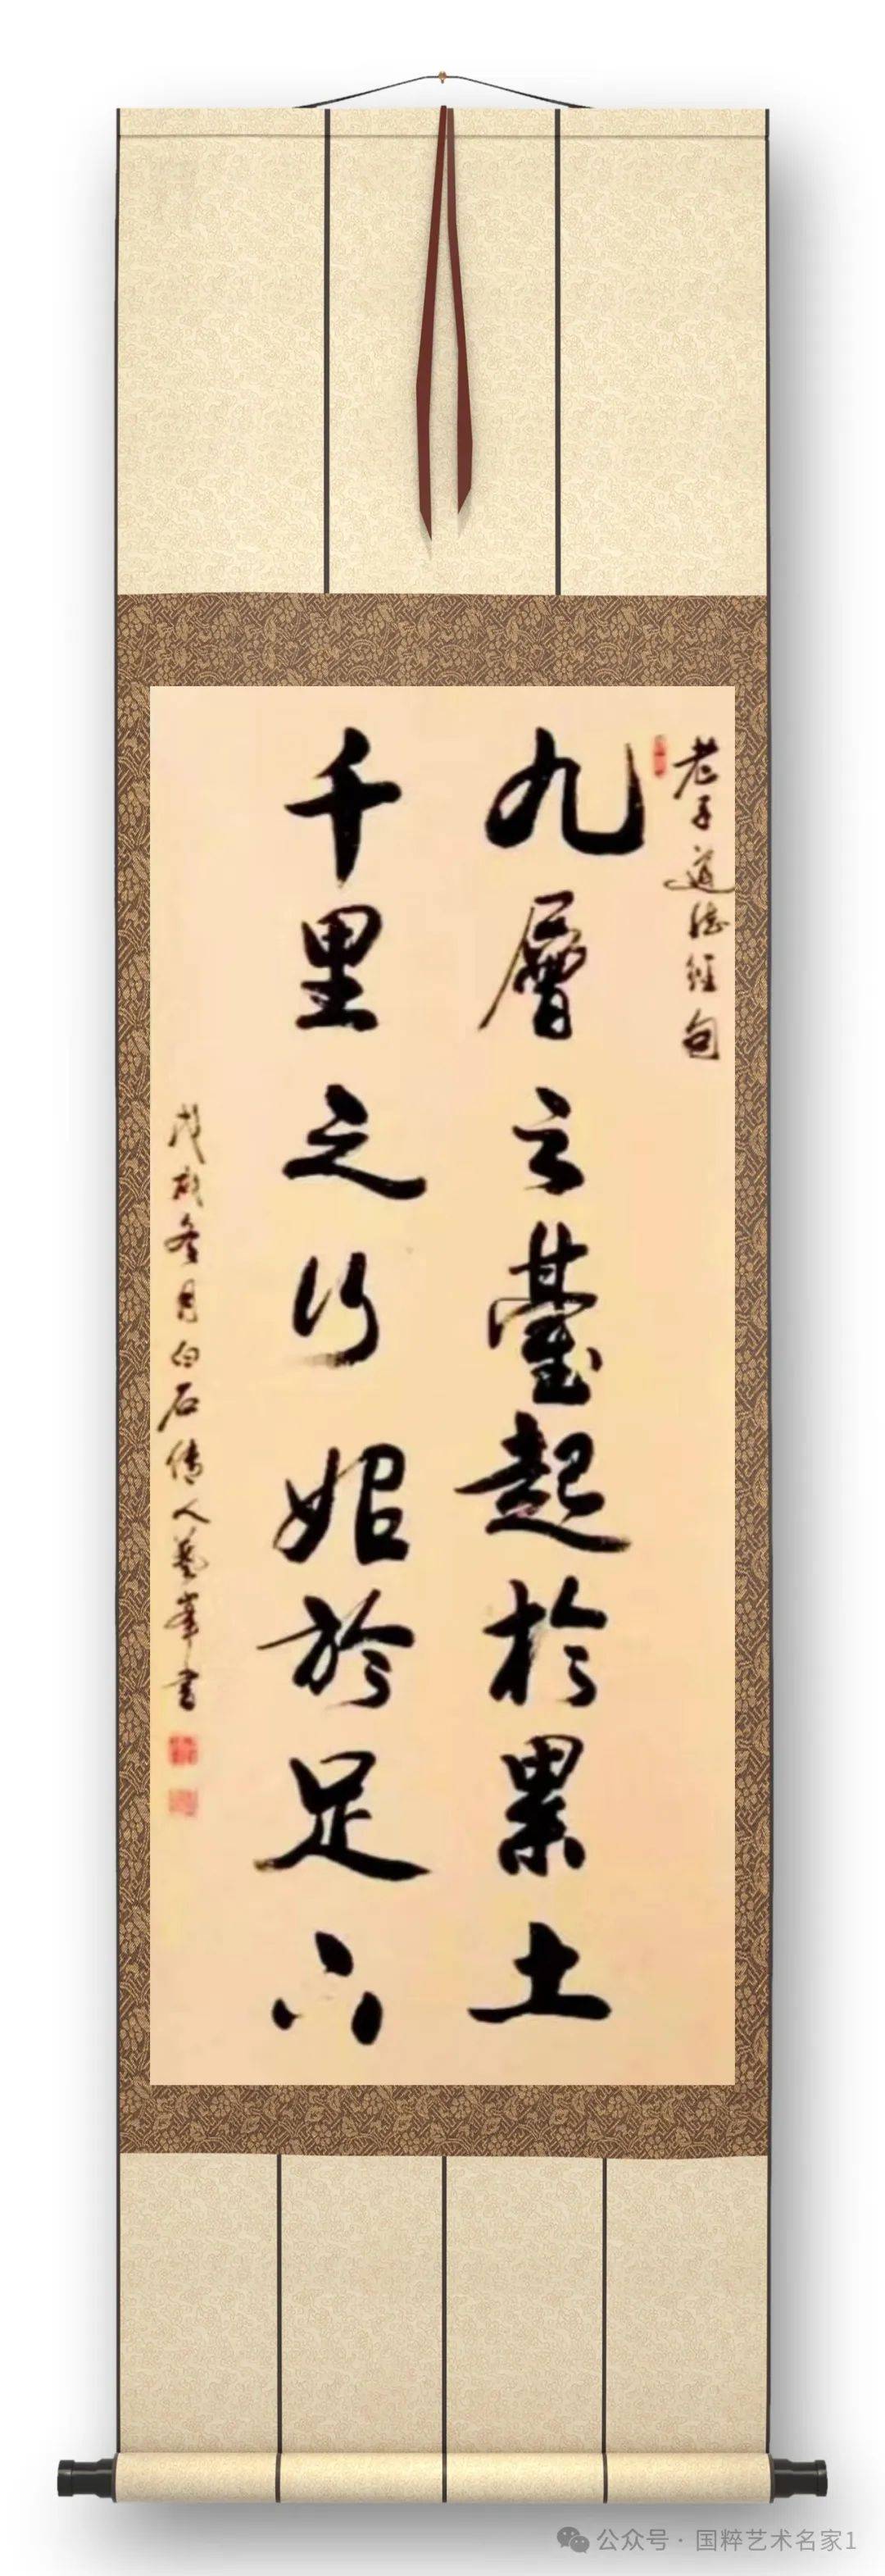 老子道德經句
九層之臺起於累土
千里之行始於足下
戊戌冬月白石傳人藝峯書
公众号 · 国粹艺术名家1